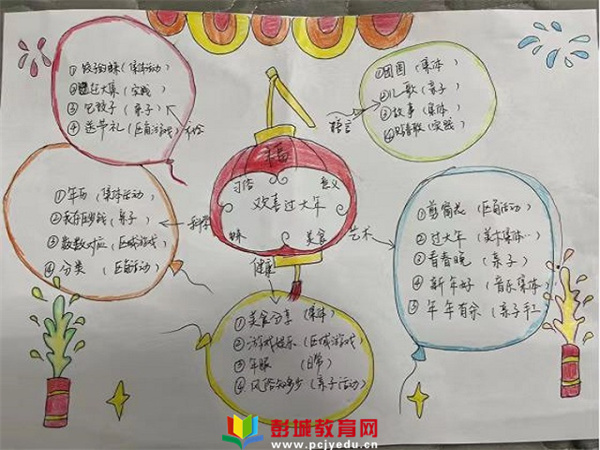 ①饺子的妹(集体活动)
过大年(实践)
③包饺子(亲子)
④送节礼(区角游戏)
①团圆(集体)
②儿歌(亲子)
③故事(集体)
语言
福
习俗
意义
欢喜过大年
美食
①年历(集体活动)
②我存压岁钱(亲子)
③数数对应(区域游戏)
④分类(区角活动)
科学
艺术
①剪窗花(区角活动)
②过大年(美术集体…)
③看春晚(亲子)
④新年好(音乐集体)
⑤年年有余(亲子手工
健康
①美食分享(集体)
②游戏娱乐(区域游戏
③午眠(日常)
④风俗知多少(亲子活动)
彭城教育网
www.pcjyedu.cn